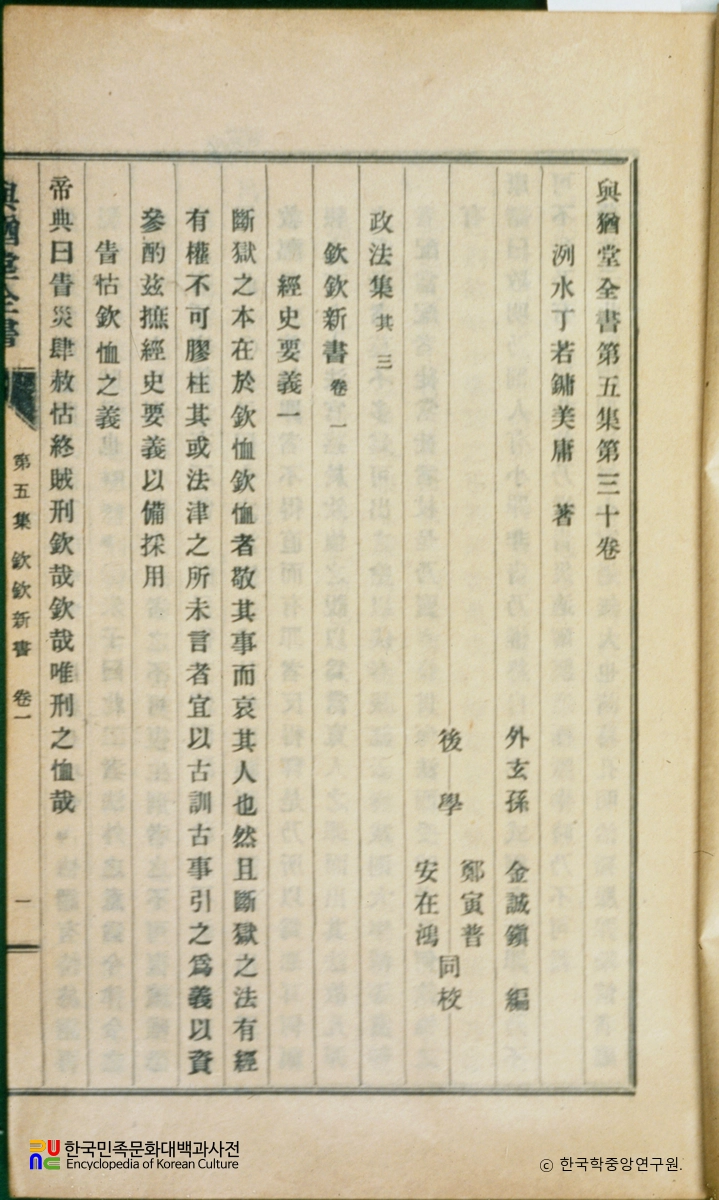 與猶堂全書第五集第三十卷
洌水丁若鏞美庸 著
外玄孫 金誠鎭 編
後學 鄭寅普
安在鴻 同校
政法集 其三
欽欽新書 卷一
經史要義一
斷獄之本在於欽恤欽恤者敬其事而哀其人也然且斷獄之法有經
有權不可膠柱其或法津之所未言者宜以古訓古事引之爲義以資
參酌玆摭經史要義以備採用
眚怙欽恤之義
帝典曰眚災肆赦怙終賊刑欽哉欽哉唯刑之恤哉
與猶堂全書
第五集 欽欽新書 卷一
一
한국민족문화대백과사전
Encyclopedia of Korean Culture
© 한국학중앙연구원.